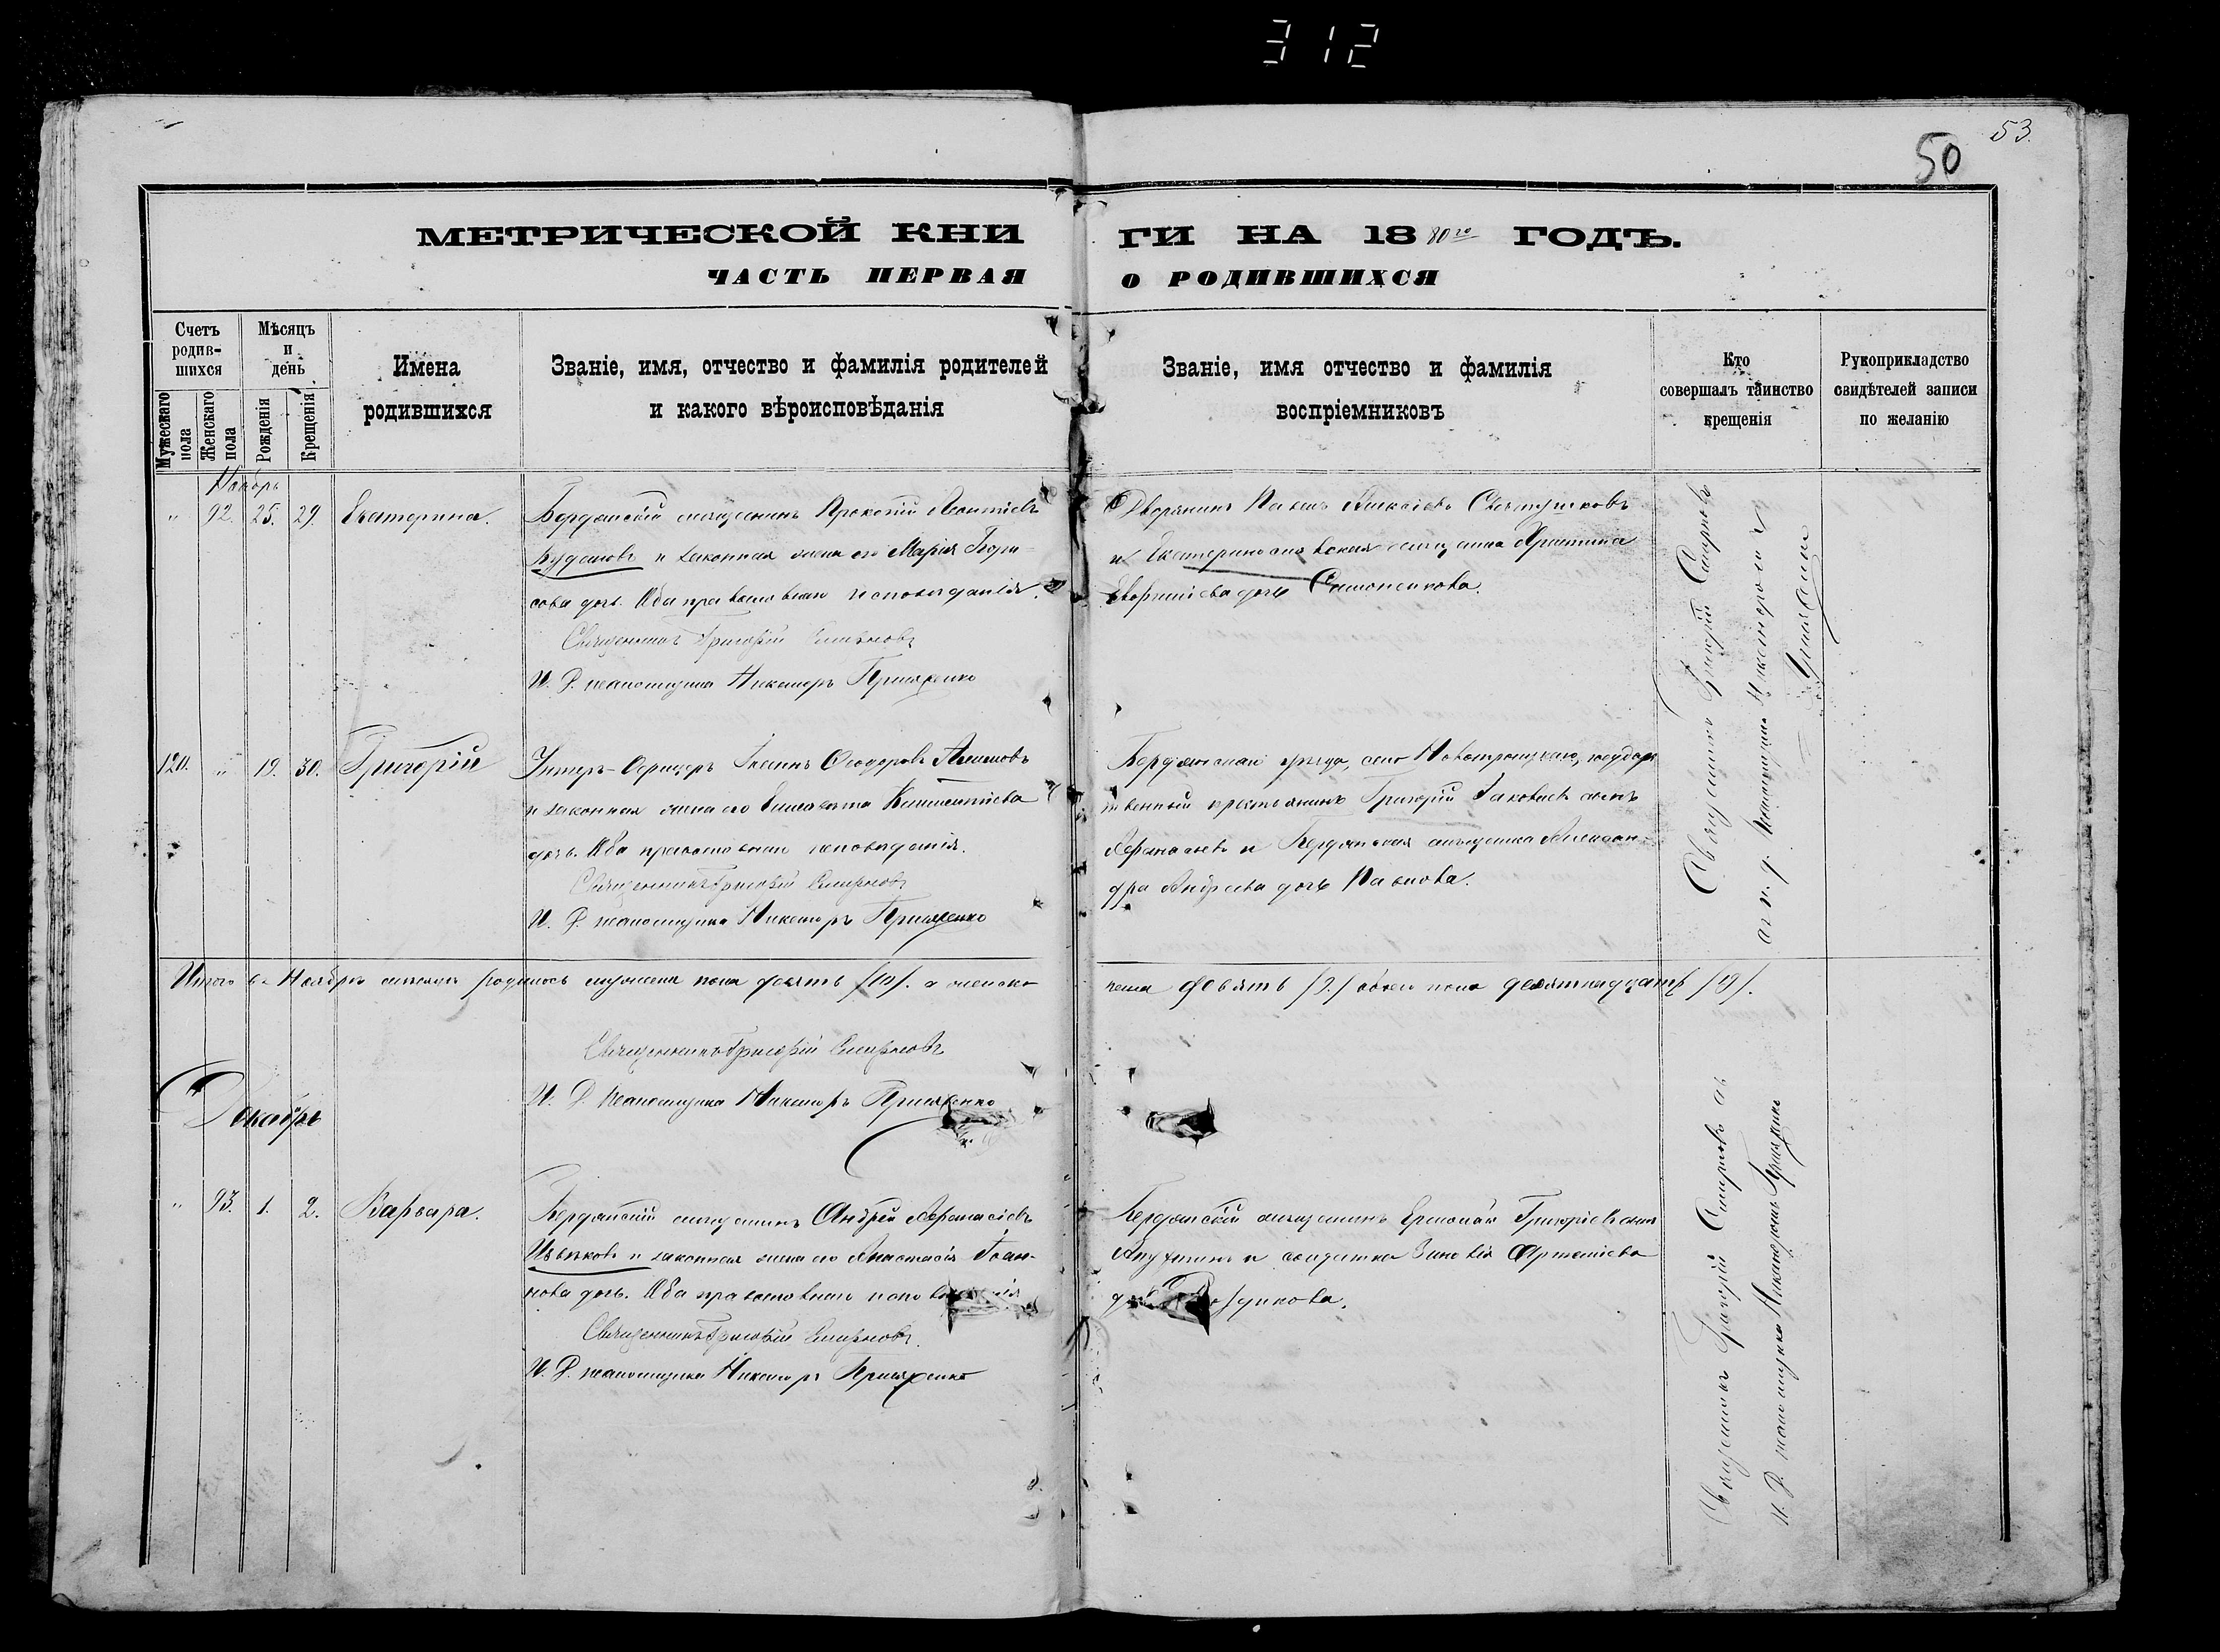 312
53.
50
МЕТРИЧЕСКОЙ КНИ ГИ НА 1880го ГОДЪ.
ЧАСТЬ ПЕРВАЯ О РОДИВШИХСЯ
Счетъ родив-шихся
Мужескаго пола
Женскаго пола
Мѣсяцъ и день
Рожденія
Крещенія
Имена родившихся
Званіе, имя, отчество и фамилія родителей
и какого вѣроисповѣданія
Званіе, имя отчество и фамилія
воспріемниковъ
Кто
совершалъ таинство
крещенія
Рукоприкладство
свидѣтелей записи
по желанію
Ноябрь
" 92. 25. 29. Екатерина.
Бердянскій мѣщанинъ Прокопій Леонтіевъ
и законная жена его Марія Бори-
сова дочь. Оба православнаго исповѣданія.
Священникъ Григорій Смирновъ
И. Д. псаломщика Никаноръ
Дворянинъ Павелъ Алексѣевъ
и Екатеринославская мѣщанка Христина
дочь Симоненкова.
Священникъ Григорій Смирновъ
и. д. псаломщика Никаноромъ
120. " 19. 30. Григорій
Унтеръ-Офицеръ Іоаннъ Ѳеодоровъ
и законная жена его Елисавета
дочь. Оба православнаго исповѣданія.
Священникъ Григорій Смирновъ
И. Д. псаломщика Никаноръ
Бердянскаго уѣзда, село Новотроицкаго, государ
твенный крестьянинъ Григорій Іаковлевъ сынъ
Аѳанасьевъ и Бердянская мѣщанка Алексан-
дра Андреева дочь Павлова.
Итого въ Ноябрѣ мѣсяцѣ родилось мужеска пола десять /10/. а женска
пола девять /9/ обоего пола девятнадцать /19/.
Священникъ Григорій Смирновъ
И. Д. Псаломщика Никаноръ
Декабрь
" 93. 1. 2. Варвара.
Бердянскій мѣщанинъ Андрей Аѳанасіевъ
и законная жена его Анастасія Іоан-
нова дочь. Оба православнаго
Священникъ Григорій Смирновъ.
И. Д. псаломщика Никаноръ
Бердянскій мѣщанинъ Ермолай Григоріевъ сынъ
и солдатка Зиновія Артеміева
Священникъ Григорій Смирновъ съ
И. Д. псаломщика Никаноромъ